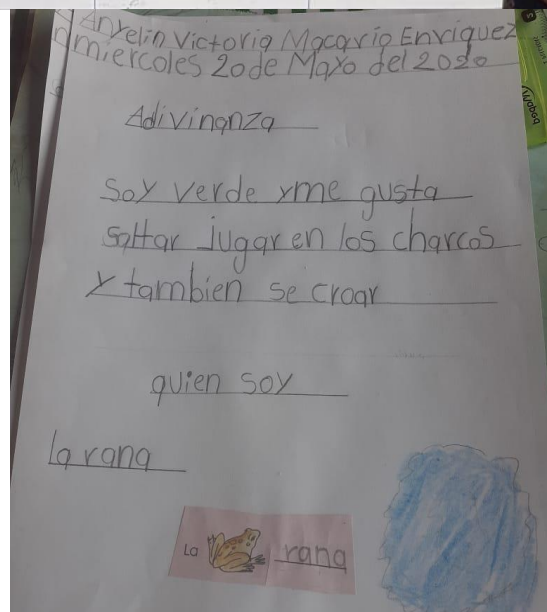 Anyelin Victoria Macario Enriquez
miercoles 20 de Mayo del 2020
Adivinanza
Soy verde y me gusta
saltar jugar en los charcos
y tambien se croar
quien soy
la rana
La rana